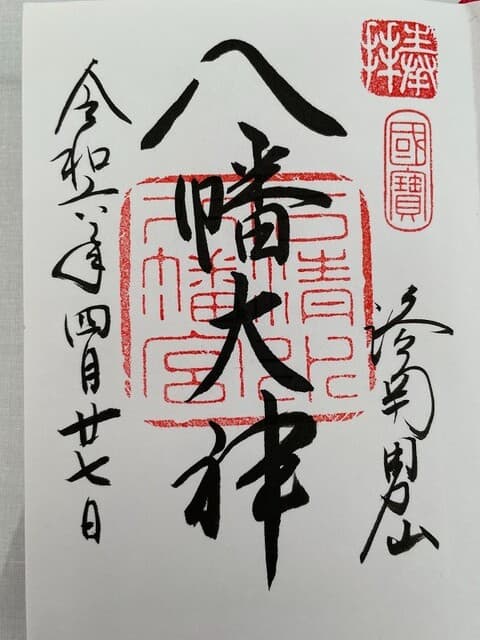 奉拝
國寶
洛南男山
八幡大神
石清水八幡宮
令和六年四月廿七日